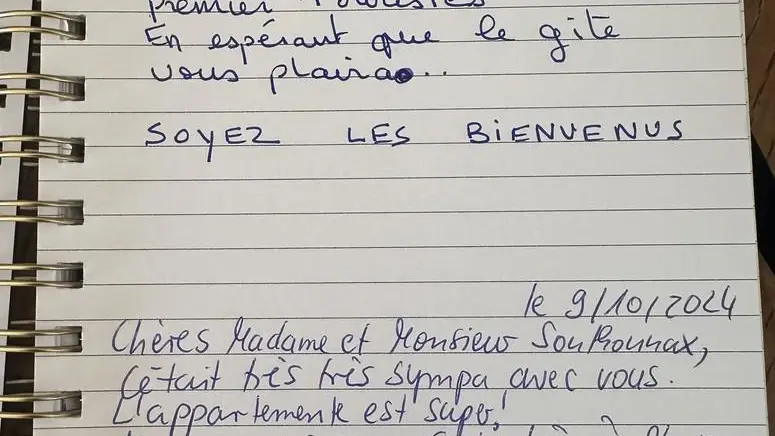 premier
En espérant que le gîte
vous plaira...
SOYEZ LES BIENVENUS
le 9/10/2024
Chères Madame et Monsieur
C'était très très sympa avec vous.
L'appartemente est super!